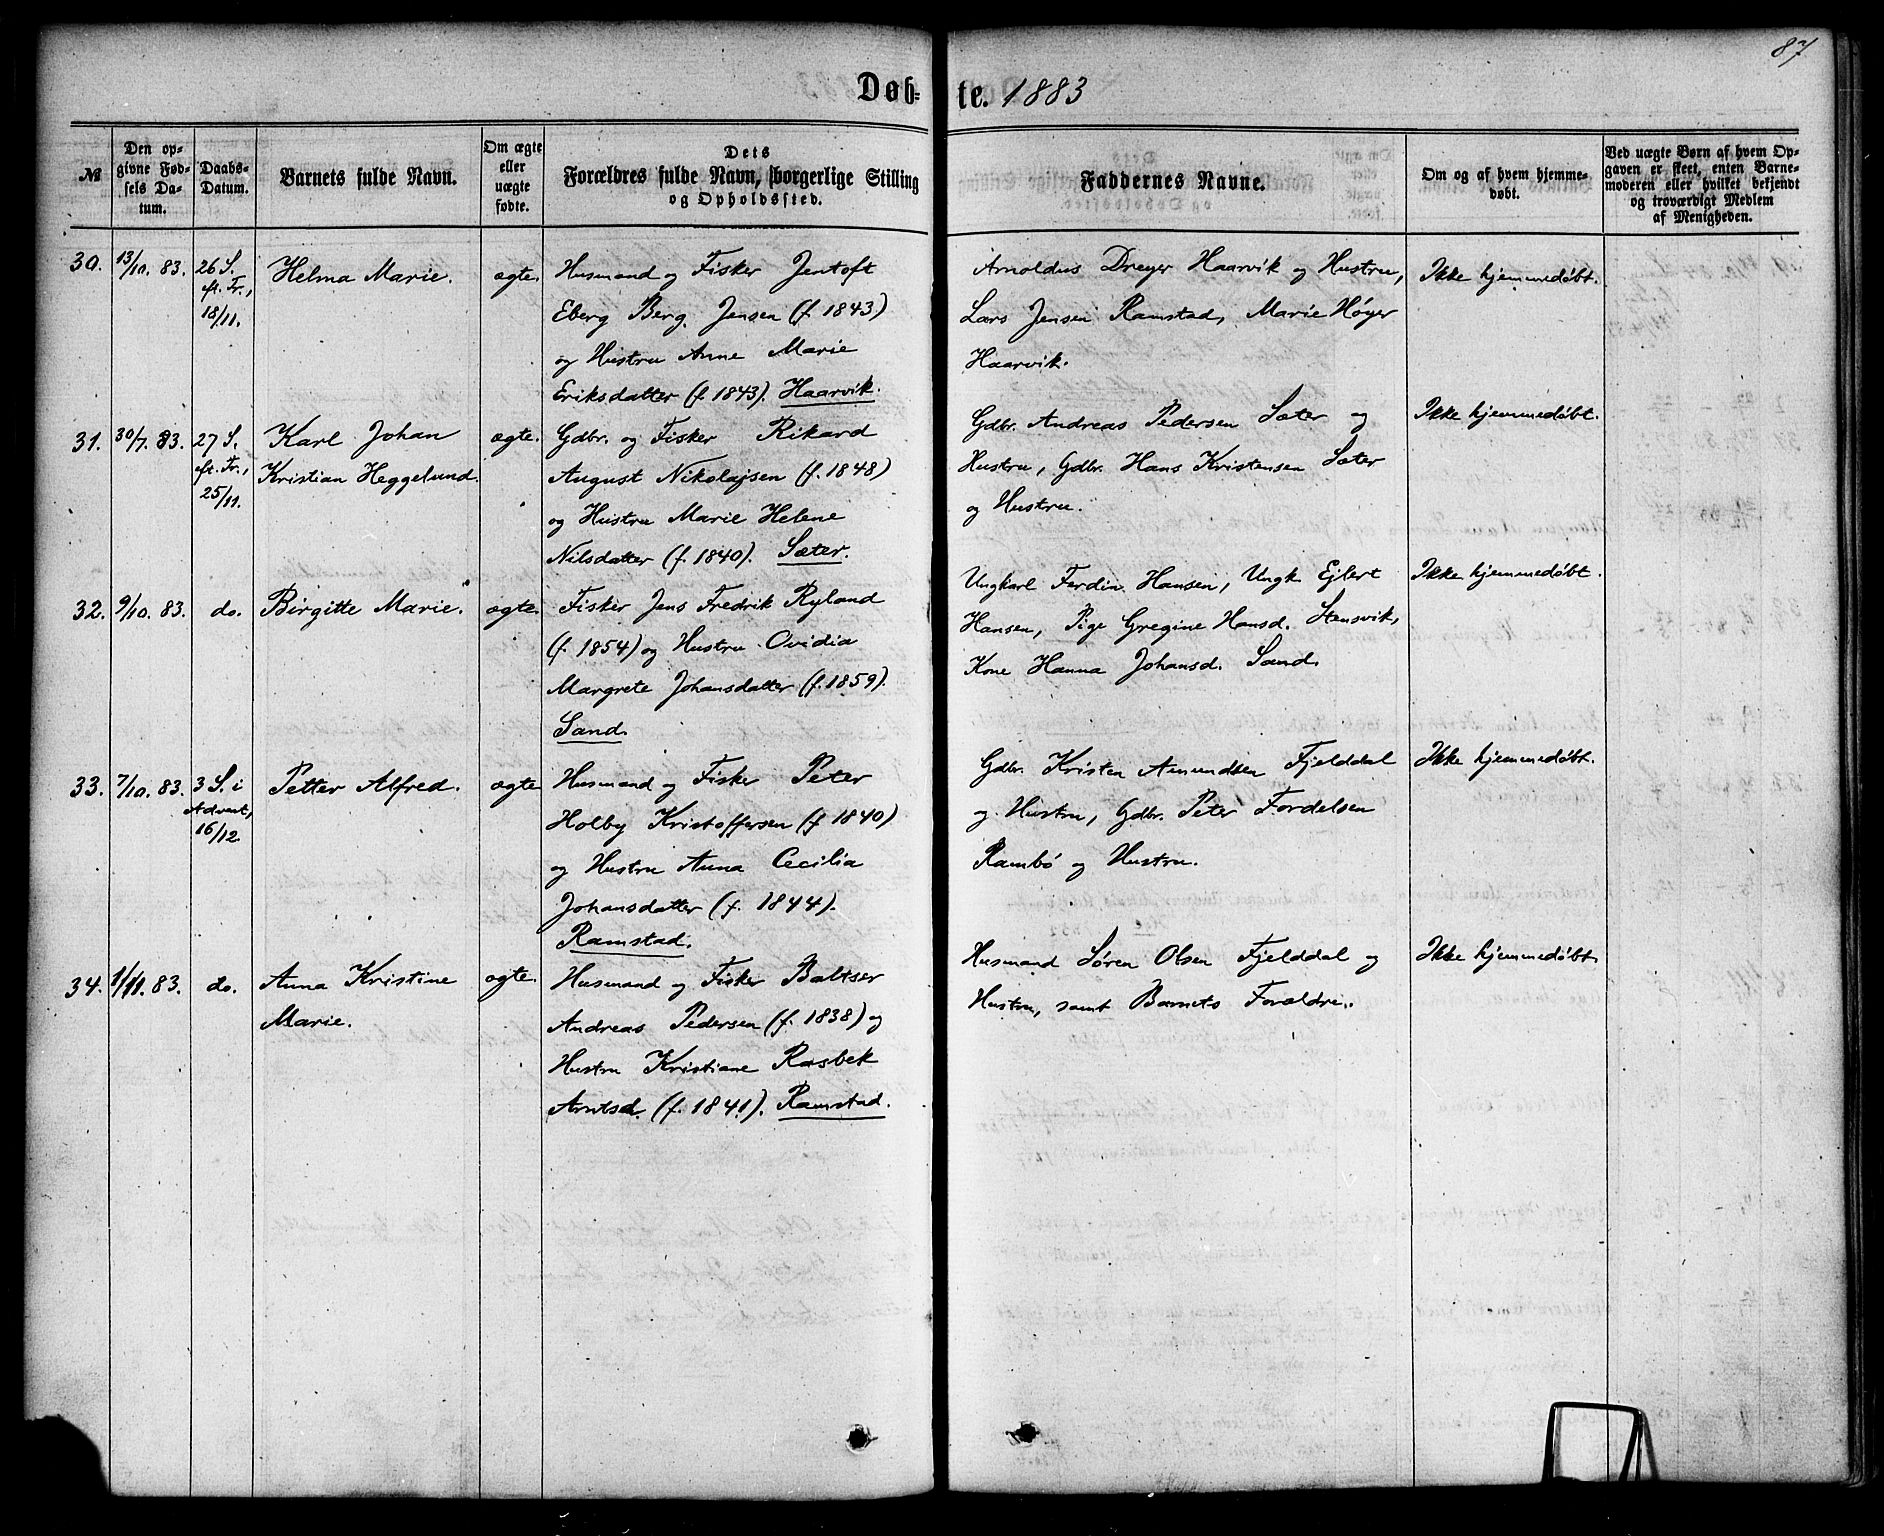 87
Døb-te. 1883
№
Den op-
givne Fød-
sels Da-
tum.
Daabs-
Datum.
Barnets fulde Navn.
Om ægte
eller
uægte
fødte.
Dets
Forældres fulde Navn, borgerlige Stilling
og Opholdssted.
Faddernes Navne.
Om og af hvem hjemme-
døbt.
Ved uægte Børn af hvem Op-
gaven er skeet, enten Barne-
moderen eller hvilket bekjendt
og troværdigt Medlem
af Menigheden.
30.
13/10. 83.
26 S.
eft. Tr.,
18/11.
Helma Marie.
ægte.
Husmand og Fisker Jentoft
Eberg Berg Jensen (f. 1843)
og Hustru Anne Marie
Eriksdatter (f. 1843). Haarvik.
Arnoldus Dreyer Haarvik og Hustru,
Lars Jensen Ramstad, Marie Høyer
Haarvik.
Ikke hjemmedøbt.
31.
30/7. 83.
27 S.
eft. Tr.,
25/11.
Karl Johan
Kristian Heggelund.
ægte.
Gdbr. og Fisker Rikard
August Nikolajsen (f. 1848)
og Hustru Marie Helene
Nilsdatter (f. 1840). Sæter.
Gdbr. Andreas Pedersen Sæter og
Hustru, Gdbr. Hans Kristensen Sæter
og Hustru.
Ikke hjemmedøbt.
32.
9/10. 83.
do.
Birgitte Marie.
ægte.
Fisker Jens Fredrik Ryland
(f. 1854) og Hustru Ovidia
Margrete Johansdatter (f. 1859).
Sand.
Ungkarl Ferdin. Hansen, Ungk. Ejlert
Hansen, Pige Gregine Hansd. Stensvik,
Kone Hanna Johansd. Sand.
Ikke hjemmedøbt.
33.
7/10. 83.
3 S. i
Advent,
16/12.
Petter Alfred.
ægte.
Husmand og Fisker Peter
Holby Kristoffersen (f. 1840)
og Hustru Anna Cecilia
Johansdatter (f. 1844).
Ramstad.
Gdbr. Kristen Amundsen Fjelddal
og Hustru, Gdbr. Peter Fordelsen
Rambø og Hustru.
Ikke hjemmedøbt.
34.
1/11. 83.
do.
Anna Kristine
Marie.
ægte.
Husmand og Fisker Baltser
Andreas Pedersen (f. 1838) og
Hustru Kristiane Rasbek
Arntsd. (f. 1841). Ramstad.
Husmand Søren Olsen Fjelddal og
Hustru, samt Barnets Forældre.
Ikke hjemmedøbt.